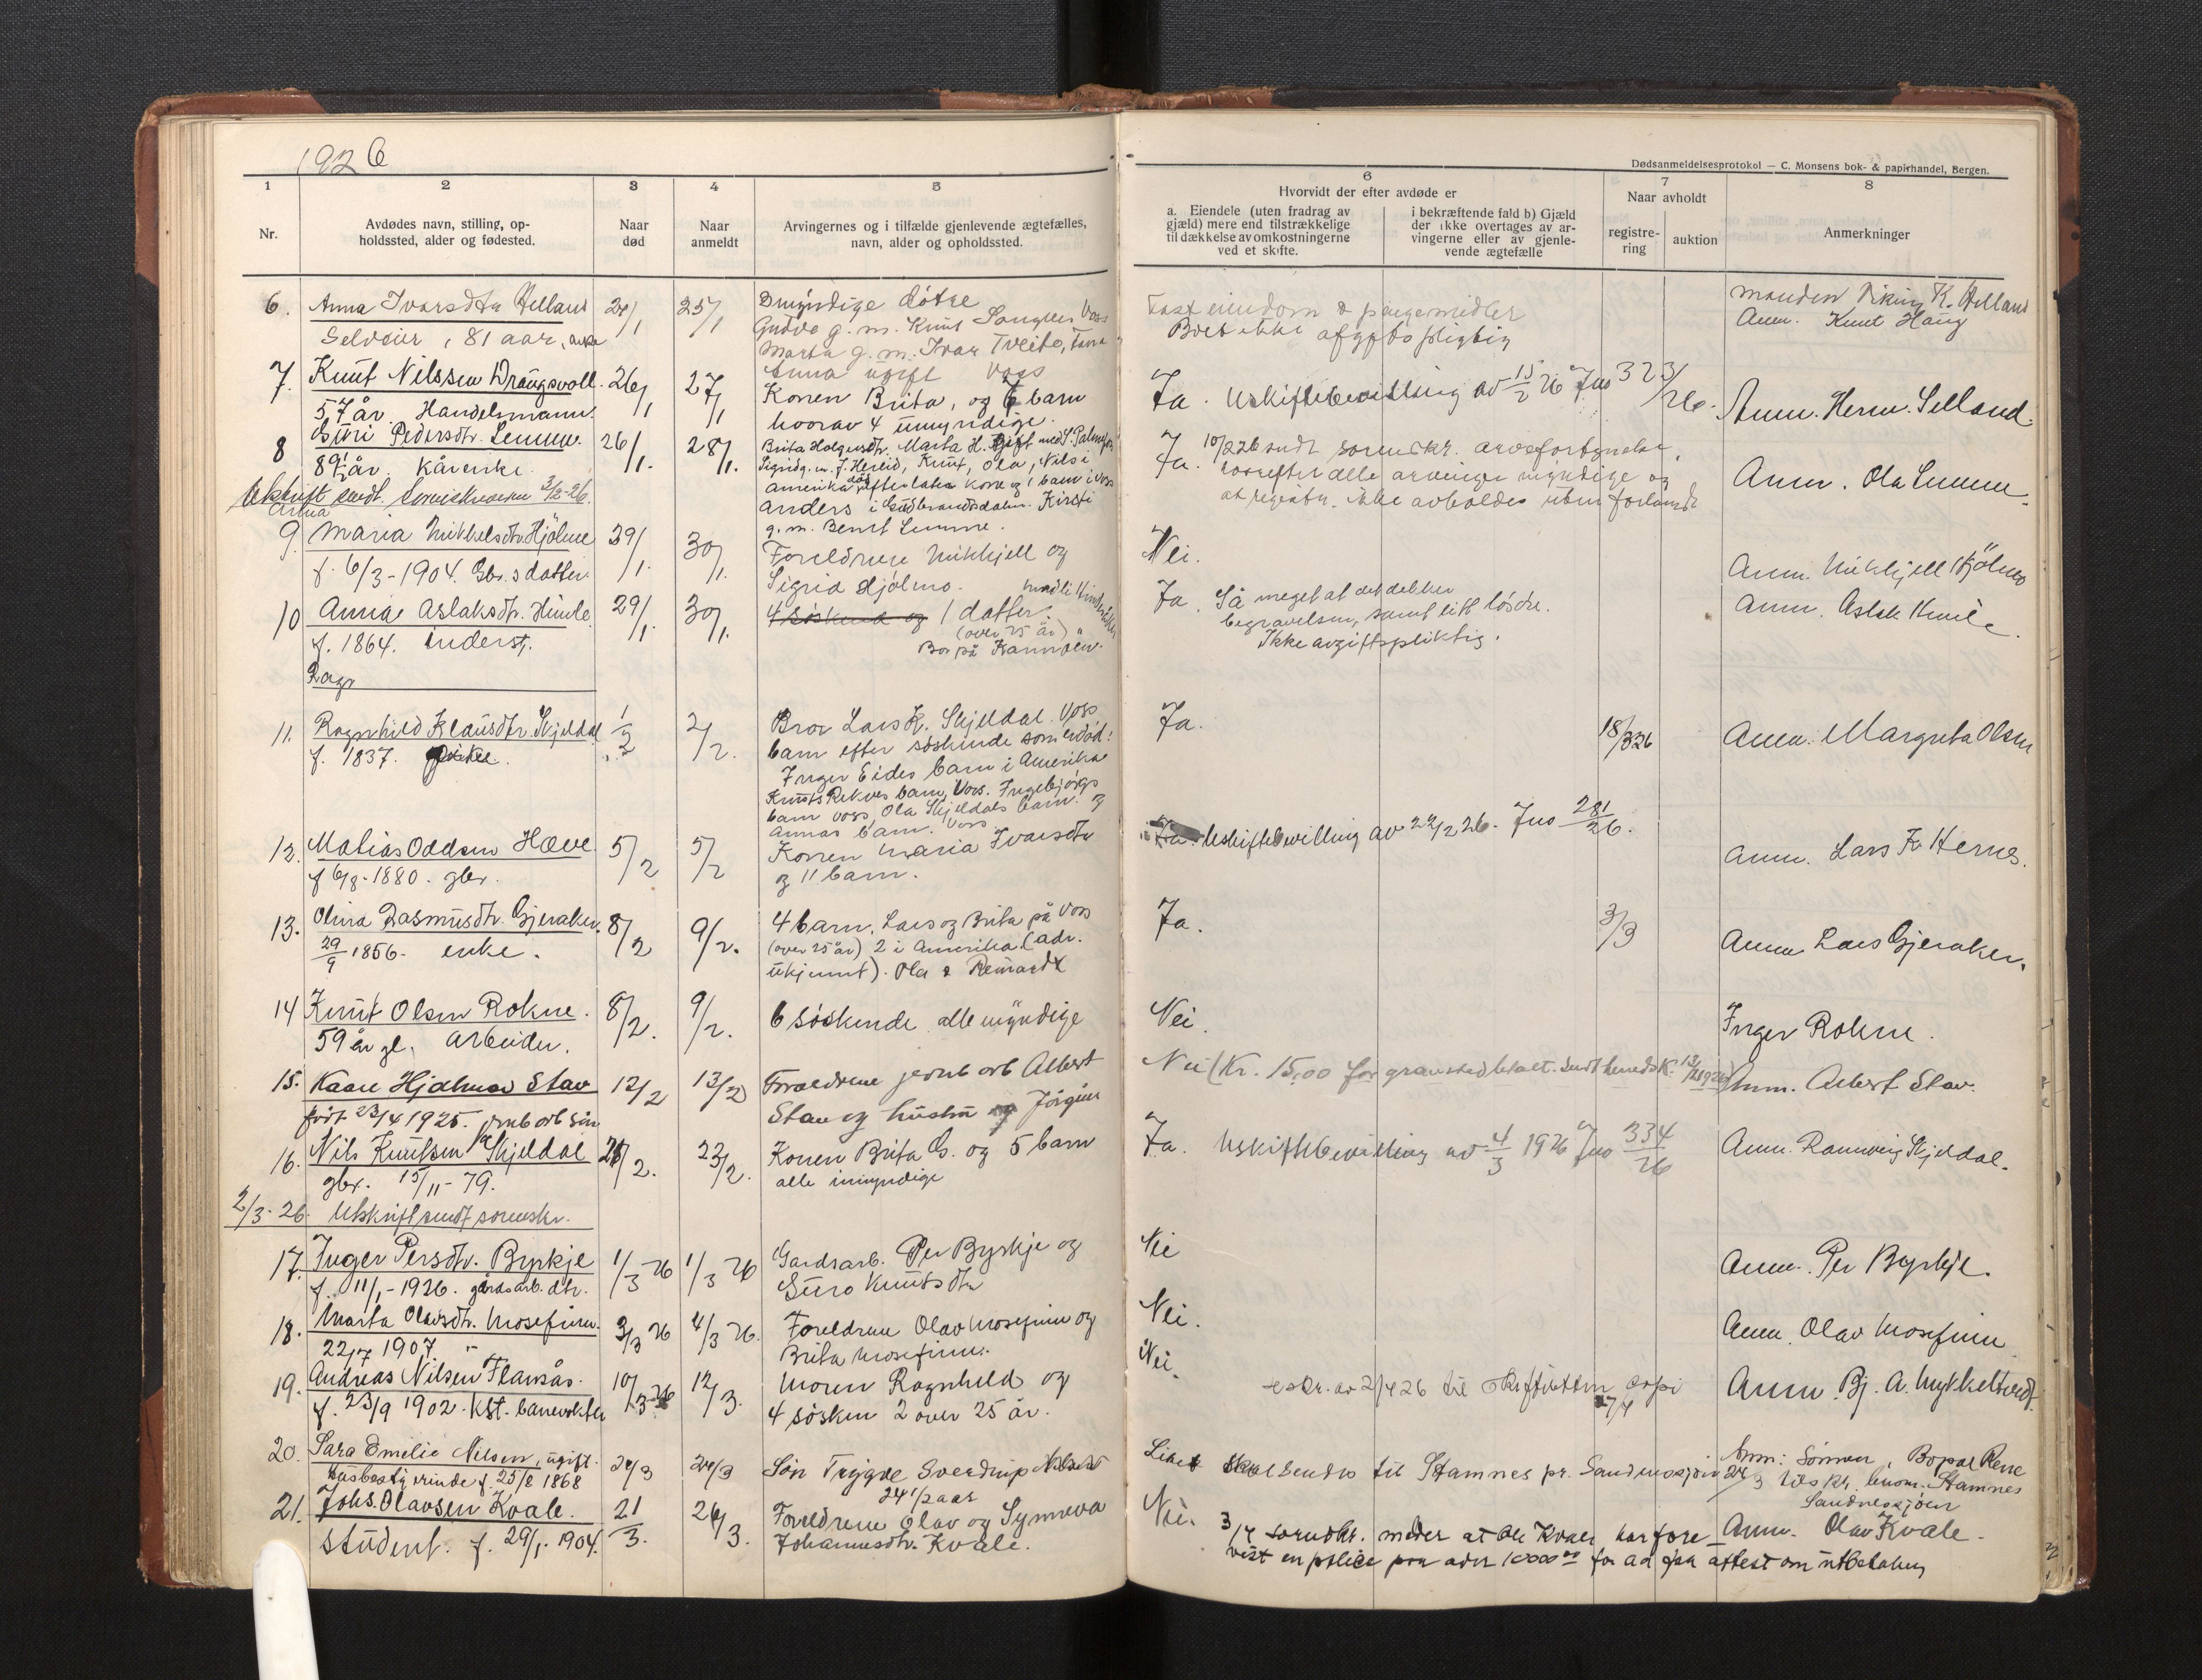 1926
Dødsanmeldelsesprotokol — C. Monsens bok- & papirhandel, Bergen.
1
2
3
4
5
6
7
8
Nr.
Avdødes navn, stilling, op-
holdssted, alder og fødested.
Naar
død
Naar
anmeldt
Arvingernes og i tilfælde gjenlevende ægtefælles,
navn, alder og opholdssted.
Hvorvidt der efter avdøde er
a. Eiendele (uten fradrag av
gjæld) mere end tilstrækkelige
til dækkelse av omkostningerne
ved et skifte.
i bekræftende fald b) Gjæld
der ikke overtages av ar-
vingerne eller av gjenle-
vende ægtefælle
Naar avholdt
registre-
ring
auktion
Anmerkninger
6. Anna Ivarsdtr Helland
Selveier, 81 aar,
24/1
25/1
3 myndige døtre
Gudve g. m. Knut Voss
Marta g. m. Ivar Tveite,
Anna ugift Voss
Fast eiendom & pengemidler
Boet ikke afgifts pligtig
manden Viking K. Helland
Anm. Knut Haug
7. Knut Nilssen Drøugsvoll
57 år. Handelsmann.
26/1
27/1
Konen Brita, og 7 barn
hvorav 4 umyndige.
Ja. Uskiftebevilling av 15/2 26 Jno 323/26.
Anm. Herm. Selland.
8 Guri Pedersdtr. Lemme.
89 1/2 år. Kårenke.
Utskrift sendt. Sorenskriveren 3/2-26.
26/1.
28/1.
Brita Holgersdtr. Marta H. gift med S. Palmafos
Sigrid g. m. J. Hereid, Knut, Ola, Nils i
Amerika død efterlater kone og 1 barn i Voss
Anders i Gudbrandsdalen. Kirsti
g. m. Bernt Lemme.
Ja. 10/2 26 sendt sorenskr. arvefortegnelse,
hvorefter alle arvinger myndige og
at registr. ikke avholdes uten forlangt
Anm. Ola Lemme
9 Anna
Maria Mikkelsdtr. Hjølmo
f. 6/3-1904. Gbr.s datter.
29/1.
30/1.
Foreldrene Mikkjell og
Sigrid Hjølmo.
Nei.
Anm. Mikkjell Hjølmo
10 Anna Aslaksdtr. Himle.
f. 1864. inderst.
29/1.
30/1.
4 søskend og 1 datter.
(over 25 år)
Bor på Karmøen.
Ja. Så meget at det dekker
begravelsen, samt litt løsøre.
Ikke avgiftspliktig.
Anm. Aslak Himle.
Ragn
11. Ragnhild Klausdtr. Skjeldal
f. 1837.
1/2
2/2.
Bror Lars K. Skjeldal. Voss
barn efter søskende som er død:
Inger Eides barn i Amerika
Knuts Rekves barn, Voss. Ingebjørgs
barn Voss, Ola Skjeldals barn og
Annas barn. Voss
Ja.
18/3 26
Anm. Margreta Olsen
12. Matias Oddsen Hæve.
f 6/8-1880. gbr.
5/2
5/2
Konen Maria Ivarsdtr
og 11 barn.
Ja. Uskiftebevilling av 24/2 26. Jno 281/26.
Anm. Lars K Hernes.
13. Olina Rasmusdtr. Gjeraker.
29/9 1856. enke.
8/2
9/2.
4 barn, Lars og Brita på Voss
(over 25 år) 2 i Amerika (adr.
ukjennt). Ola &
Ja.
3/3
Anm Lars Gjeraker.
14 Knut Olsen Rokne.
59 år gl. arbeider.
8/2.
9/2.
6 søskende alle myndige
Nei.
Inger Rokne.
15. Kaare Hjalmar Stav
født 23/4 1925. jernb arb søn
12/2
13/2
Foreldrene jernb arb Albert
Stav og hustru Jørgine
Nei (Kr. 15,00 for gravsted betalt. Sendt herredsk. 13/2 1926)
Anm. Albert Stav.
16. Nils Knutsen Skjeldal
gbr. 15/11-79.
2/3-26. Utskrift sendt sorenskr.
21/2.
23/2.
Konen Brita G. og 5 barn
alle umyndige
Ja. Uskiftebevilling av 4/3 1926 Jno 334/26
Anm. Rannveig Skjeldal.
17. Inger Persdtr. Byrkje
f. 11/1-1926. gårdsarb. dtr.
1/3 26
1/3 26
Gardsarb. Per Byrkje og
Guro Knutsdtr
Nei
Anm. Per Byrkje.
18. Marta Olavsdtr. Mosefinn.
22/7 1907. "
3/3 26
4/3 26.
Foreldrene Olav Mosefinn og
Brita Mosefinn.
Nei.
Anm. Olav Mosefinn
19. Andreas Nilsen Flamsås.
f. 23/9 1902. Kst. banevokter
10/3-26
12/3.
Moren Ragnhild og
4 søsken 2 over 25 år.
Nei.
eskr. av 2/4 26 til skifteretten
7/4
Anm. Bj. A. Mykkeltvedt.
20. Sara Emelie Nilsen, ugift.
Husbestyrerinde f. 25/8 1868
24/3
24/3
Søn Trygve Sverdrup
24 1/2 aar
Liket skal sendes til Stamnes pr. Sandnessjøen
Anm: Sønnen, Bopæl
Stamnes
Sandnessjøen
21. Johs. Olavsen Kvale.
student. f. 29/1. 1904.
21/3.
26/3.
Foreldrene Olav og Synneva
Johannesdtr. Kvale.
Nei.
3/4 sorenskr. meder at Ole Kvale har fore-
vist en police paa over 10000 for at faa attest om utbetaling
Anm. Olav Kvale.